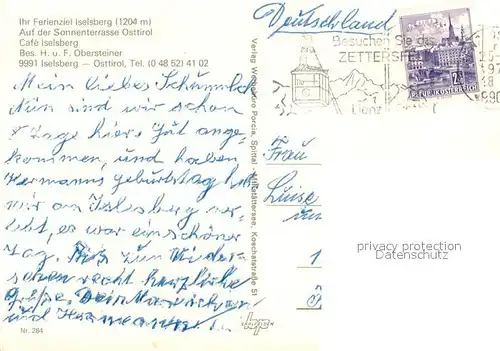 Ihr Ferienziel Iselsberg (1204 m)
Auf der Sonnenterrasse Osttirol
Café Iselsberg
Bes. H. u. F. Obersteiner
9991 Iselsberg — Osttirol, Tel. (0 48 52) 41 02
Deutschland
Besuchen Sie das
ZETTERSFELD
Lienz
REPUBLIK ÖSTERREICH
Mein liebes
Nun sind wir schon
8 Tage hier. Gut ange-
kommen, und haben
Hermanns Geburtstag
wir am Iselsberg ver-
lebt, es war ein schöner
Tag. Bis zum Wieder-
sehen recht herzliche
Grüße, Dein
und Hermann
Verlag Porcia, Spittal Millstättersee, Koschatstraße 51
Frau
Luise
privacy protection
Datenschutz
Nr. 284